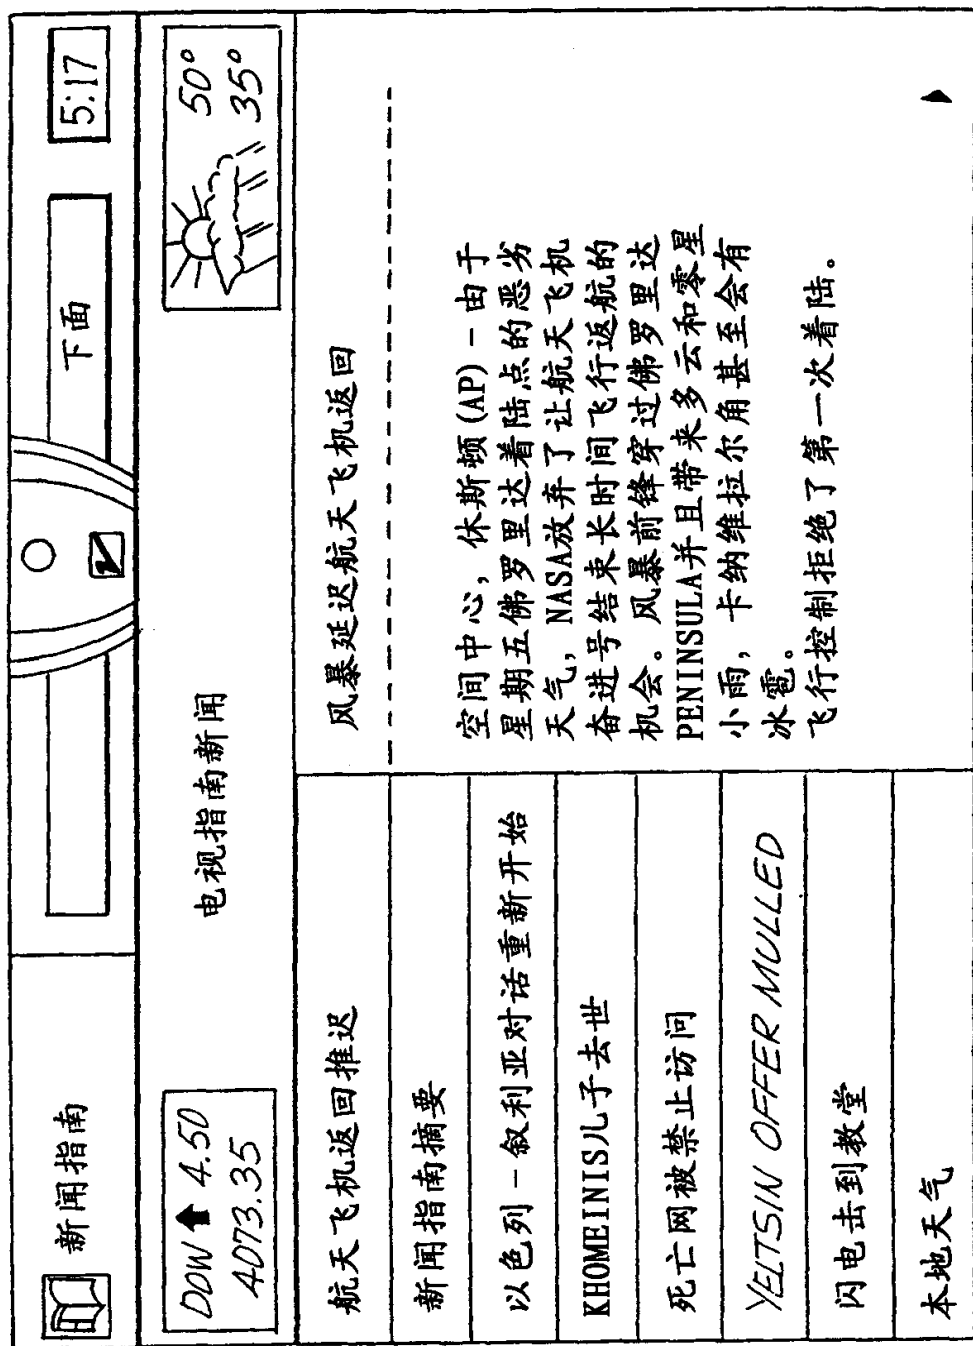 新闻指南
下面
5:17
DOW ↑ 4.50
4073.35
电视指南新闻
50°
35°
航天飞机返回推迟
新闻指南摘要
以色列-叙利亚对话重新开始
KHOMEINIS儿子去世
死亡网被禁止访问
YELTSIN OFFER MULLED
闪电击到教堂
本地天气
风暴延迟航天飞机返回
空间中心，休斯顿(AP)-由于
星期五佛罗里达着陆点的恶劣
天气，NASA放弃了让航天飞机
奋进号结束长时间飞行返航的
机会。风暴前锋穿过佛罗里达
PENINSULA并且带来多云和零星
小雨，卡纳维拉尔角甚至会有
冰雹。
飞行控制拒绝了第一次着陆。